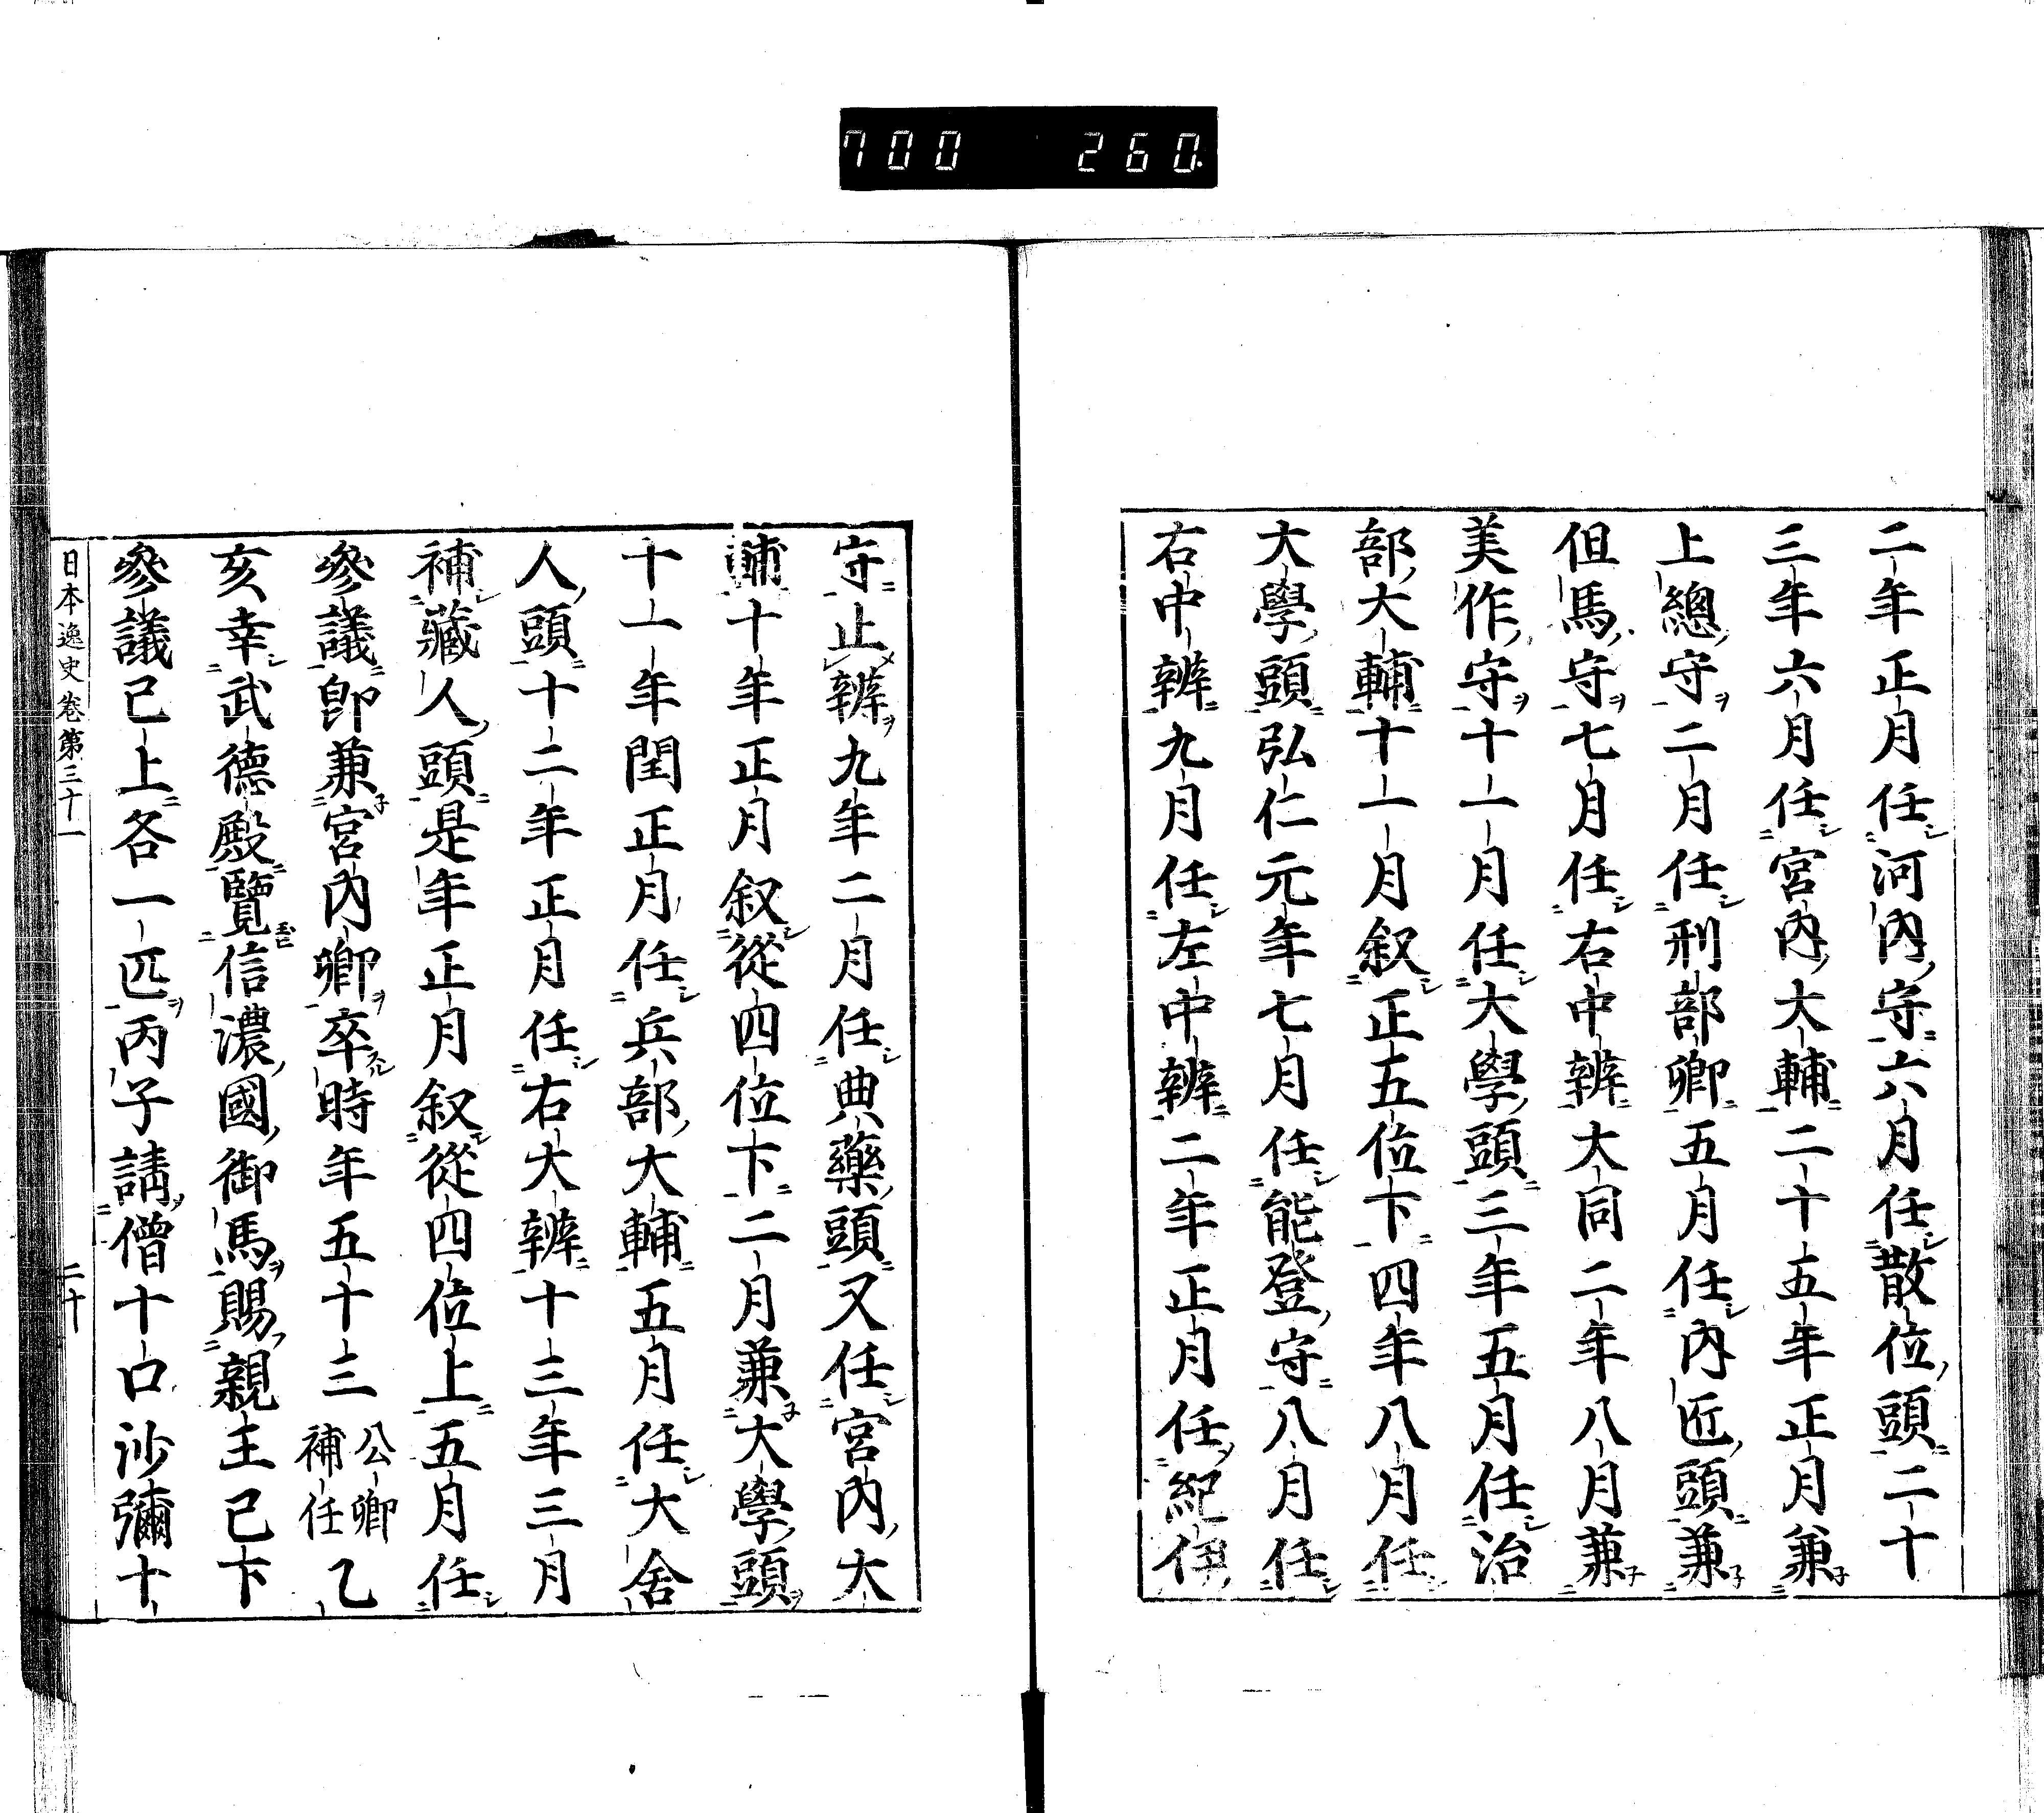 700 260
二年正月任河內守六月任散位頭二十
三年六月任宮內大輔二十五年正月兼
上總守二月任刑部卿五月任內匠頭兼
但馬守七月任右中辨大同二年八月兼
美作守十一月任大學頭三年五月任治
部大輔十一月叙正五位下四年八月任
大學頭弘仁元年七月任能登守八月任
右中辨九月任左中辨二年正月任紀伊
守止辨九年二月任典藥頭又任宮內大
輔十年正月叙從四位下二月兼大學頭
十一年閏正月任兵部大輔五月任大舍
人頭十二年正月任右大辨十三年三月
補藏人頭是年正月叙從四位上五月任
參議卽兼宮內卿卒時年五十三公卿補任乙
亥幸武德殿覽信濃國御馬賜親王已下
參議已上各一匹丙子請僧十口沙彌十
日本逸史卷第三十一 二十